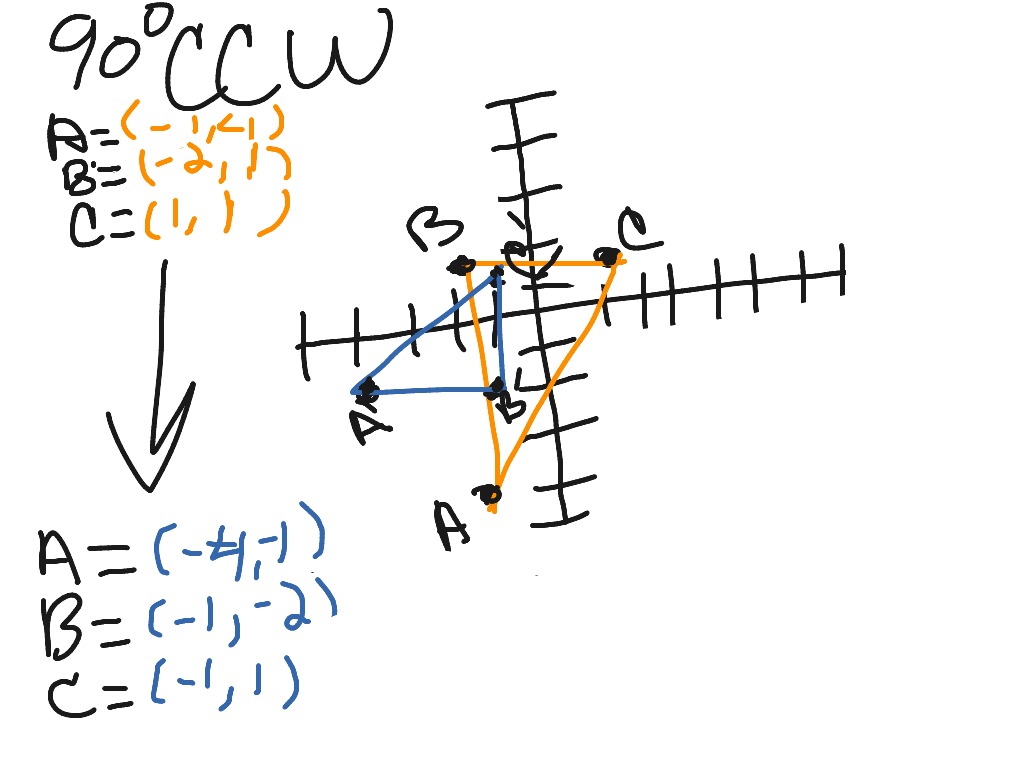 90° CCW
A=(-1,-4)
B=(-2,1)
C=(1,1)
B
C'
C
A'
B'
A
A=(-4,-1)
B=(-1,-2)
C=(-1,1)